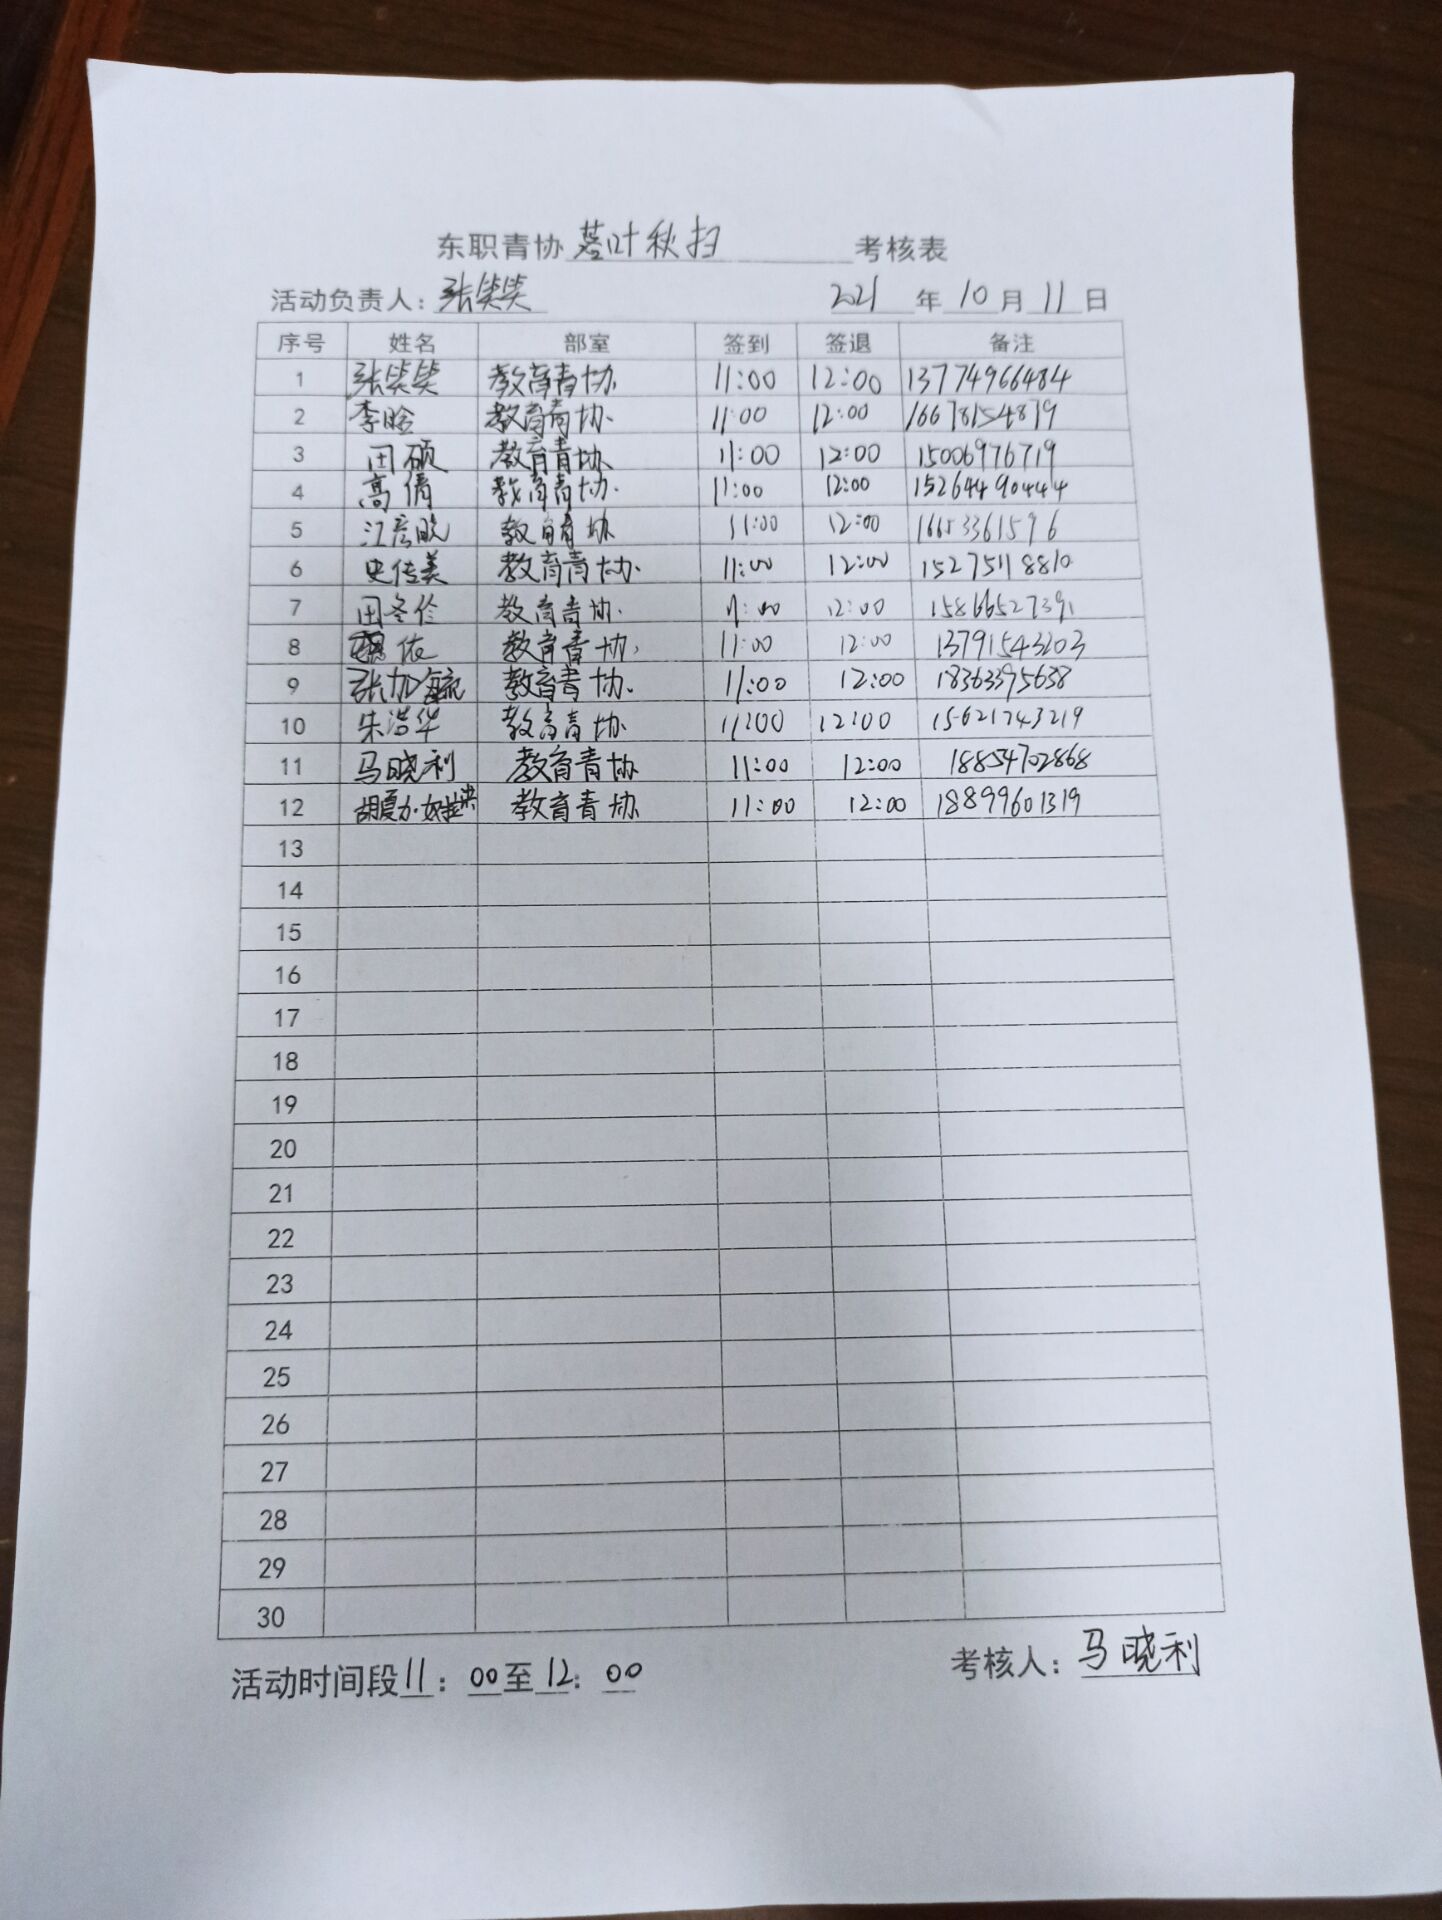 东职青协 落叶秋扫 考核表
活动负责人：张笑笑 2021 年 10 月 11 日
序号 姓名 部室 签到 签退 备注
1 张笑笑 教育青协 11:00 12:00 13774966484
2 李晗 教育青协 11:00 12:00 16678154879
3 田硕 教育青协 11:00 12:00 15006976719
4 高倩 教育青协 11:00 12:00 15264490444
5 教育青协 11:00 12:00 16653361596
6 史传美 教育青协 11:00 12:00 15275118810
7 田冬伶 教育青协 11:00 12:00 15866527391
8 依 教育青协 11:00 12:00 13791543203
9 教育青协 11:00 12:00 18363395638
10 朱浩华 教育青协 11:00 12:00 15621743219
11 马晓利 教育青协 11:00 12:00 18854702868
12 教育青协 11:00 12:00 18899601319
13
14
15
16
17
18
19
20
21
22
23
24
25
26
27
28
29
30
活动时间段11：00至12：00 考核人：马晓利